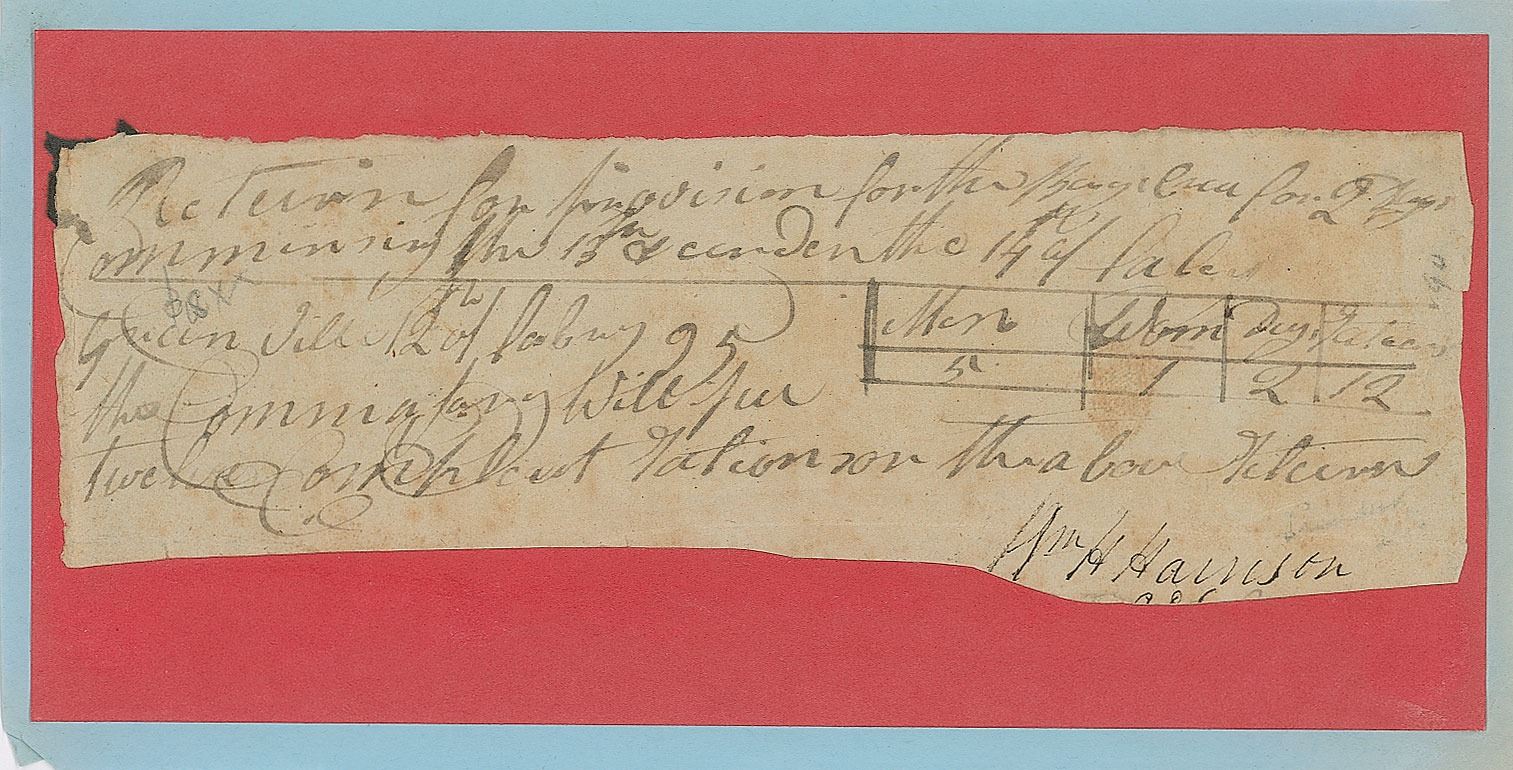 Return for provision for the for 2 Days
Commensing the 13th & ende the 14th of
Green Vill 12th of fabury 95
Men Wom Days Rations
5 1 2 12
the Commissary Will
twelve Compleat Rations on the above Return
Wm H Harrison